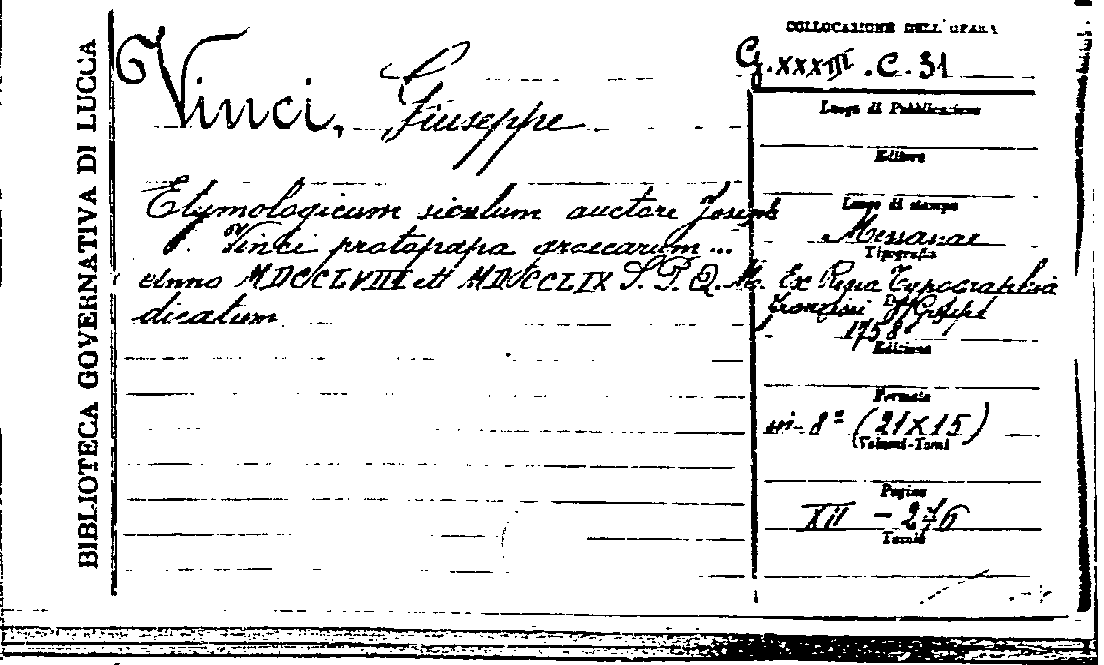 BIBLIOTECA GOVERNATIVA DI LUCCA
Vinci, Giuseppe
Etymologicum siculum auctore Joseph
Vinci protopapa graecarum...
anno MDCCLVIII et MDCCLIX S. P. Q. M.
dicatum
COLLOCAZIONE DELL'OPERA
G. XXXIII . C. 31
Luogo di Pubblicazione
Editore
Luogo di stampa
Messanae
Tipografia
Ex Regia Typographia
Francisci
1758
Edizione
Formato
in-8° (21X15)
(Volumi-Tomi
Pagine
XII - 276
Tavole